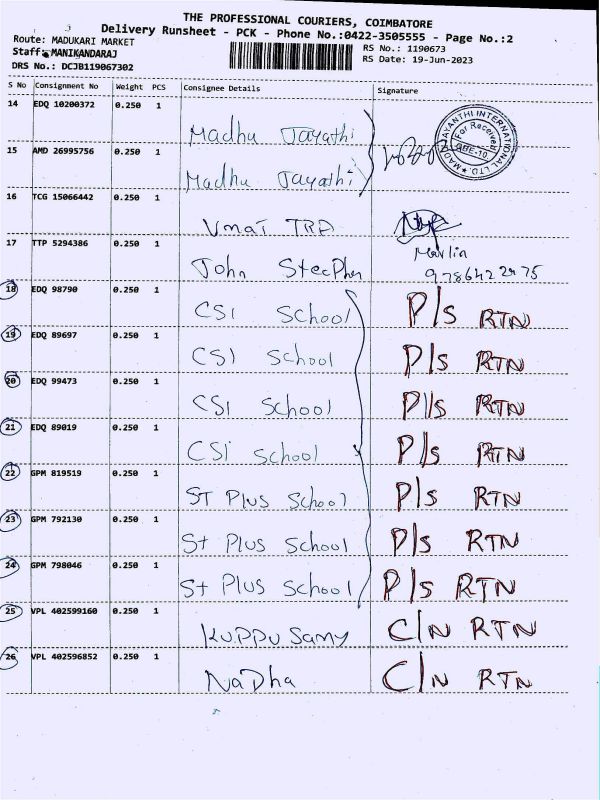 THE PROFESSIONAL COURIERS, COIMBATORE
Delivery Runsheet - PCK - Phone No.:0422-3505555 - Page No.:2
Route: MADUKARI MARKET
RS No.: 1190673
Staff: MANIKANDARAJ
RS Date: 19-Jun-2023
DRS No.: DCJB119067302
S No Consignment No Weight PCS Consignee Details Signature
14 EDQ 10200372 0.250 1 Madhu Jayathi
15 AMD 26995756 0.250 1 Madhu Jayathi
MADHU JAYANTHI INTERNATIONAL LTD.
For Received
CBE-10
16 TCG 15066442 0.250 1 Umai TRD
17 TTP 5294386 0.250 1 John Steephen Marlin
9786422475
18 EDQ 98790 0.250 1 CSI School P/s RTN
19 EDQ 89697 0.250 1 CSI School P/s RTN
20 EDQ 99473 0.250 1 CSI School P/s RTN
21 EDQ 89019 0.250 1 CSI School P/s RTN
22 GPM 819519 0.250 1 ST Plus School P/s RTN
23 GPM 792130 0.250 1 St Plus School P/s RTN
24 GPM 798046 0.250 1 St Plus School P/s RTN
25 VPL 402599160 0.250 1 Kuppu Samy C/N RTN
26 VPL 402596852 0.250 1 NaDha C/N RTN